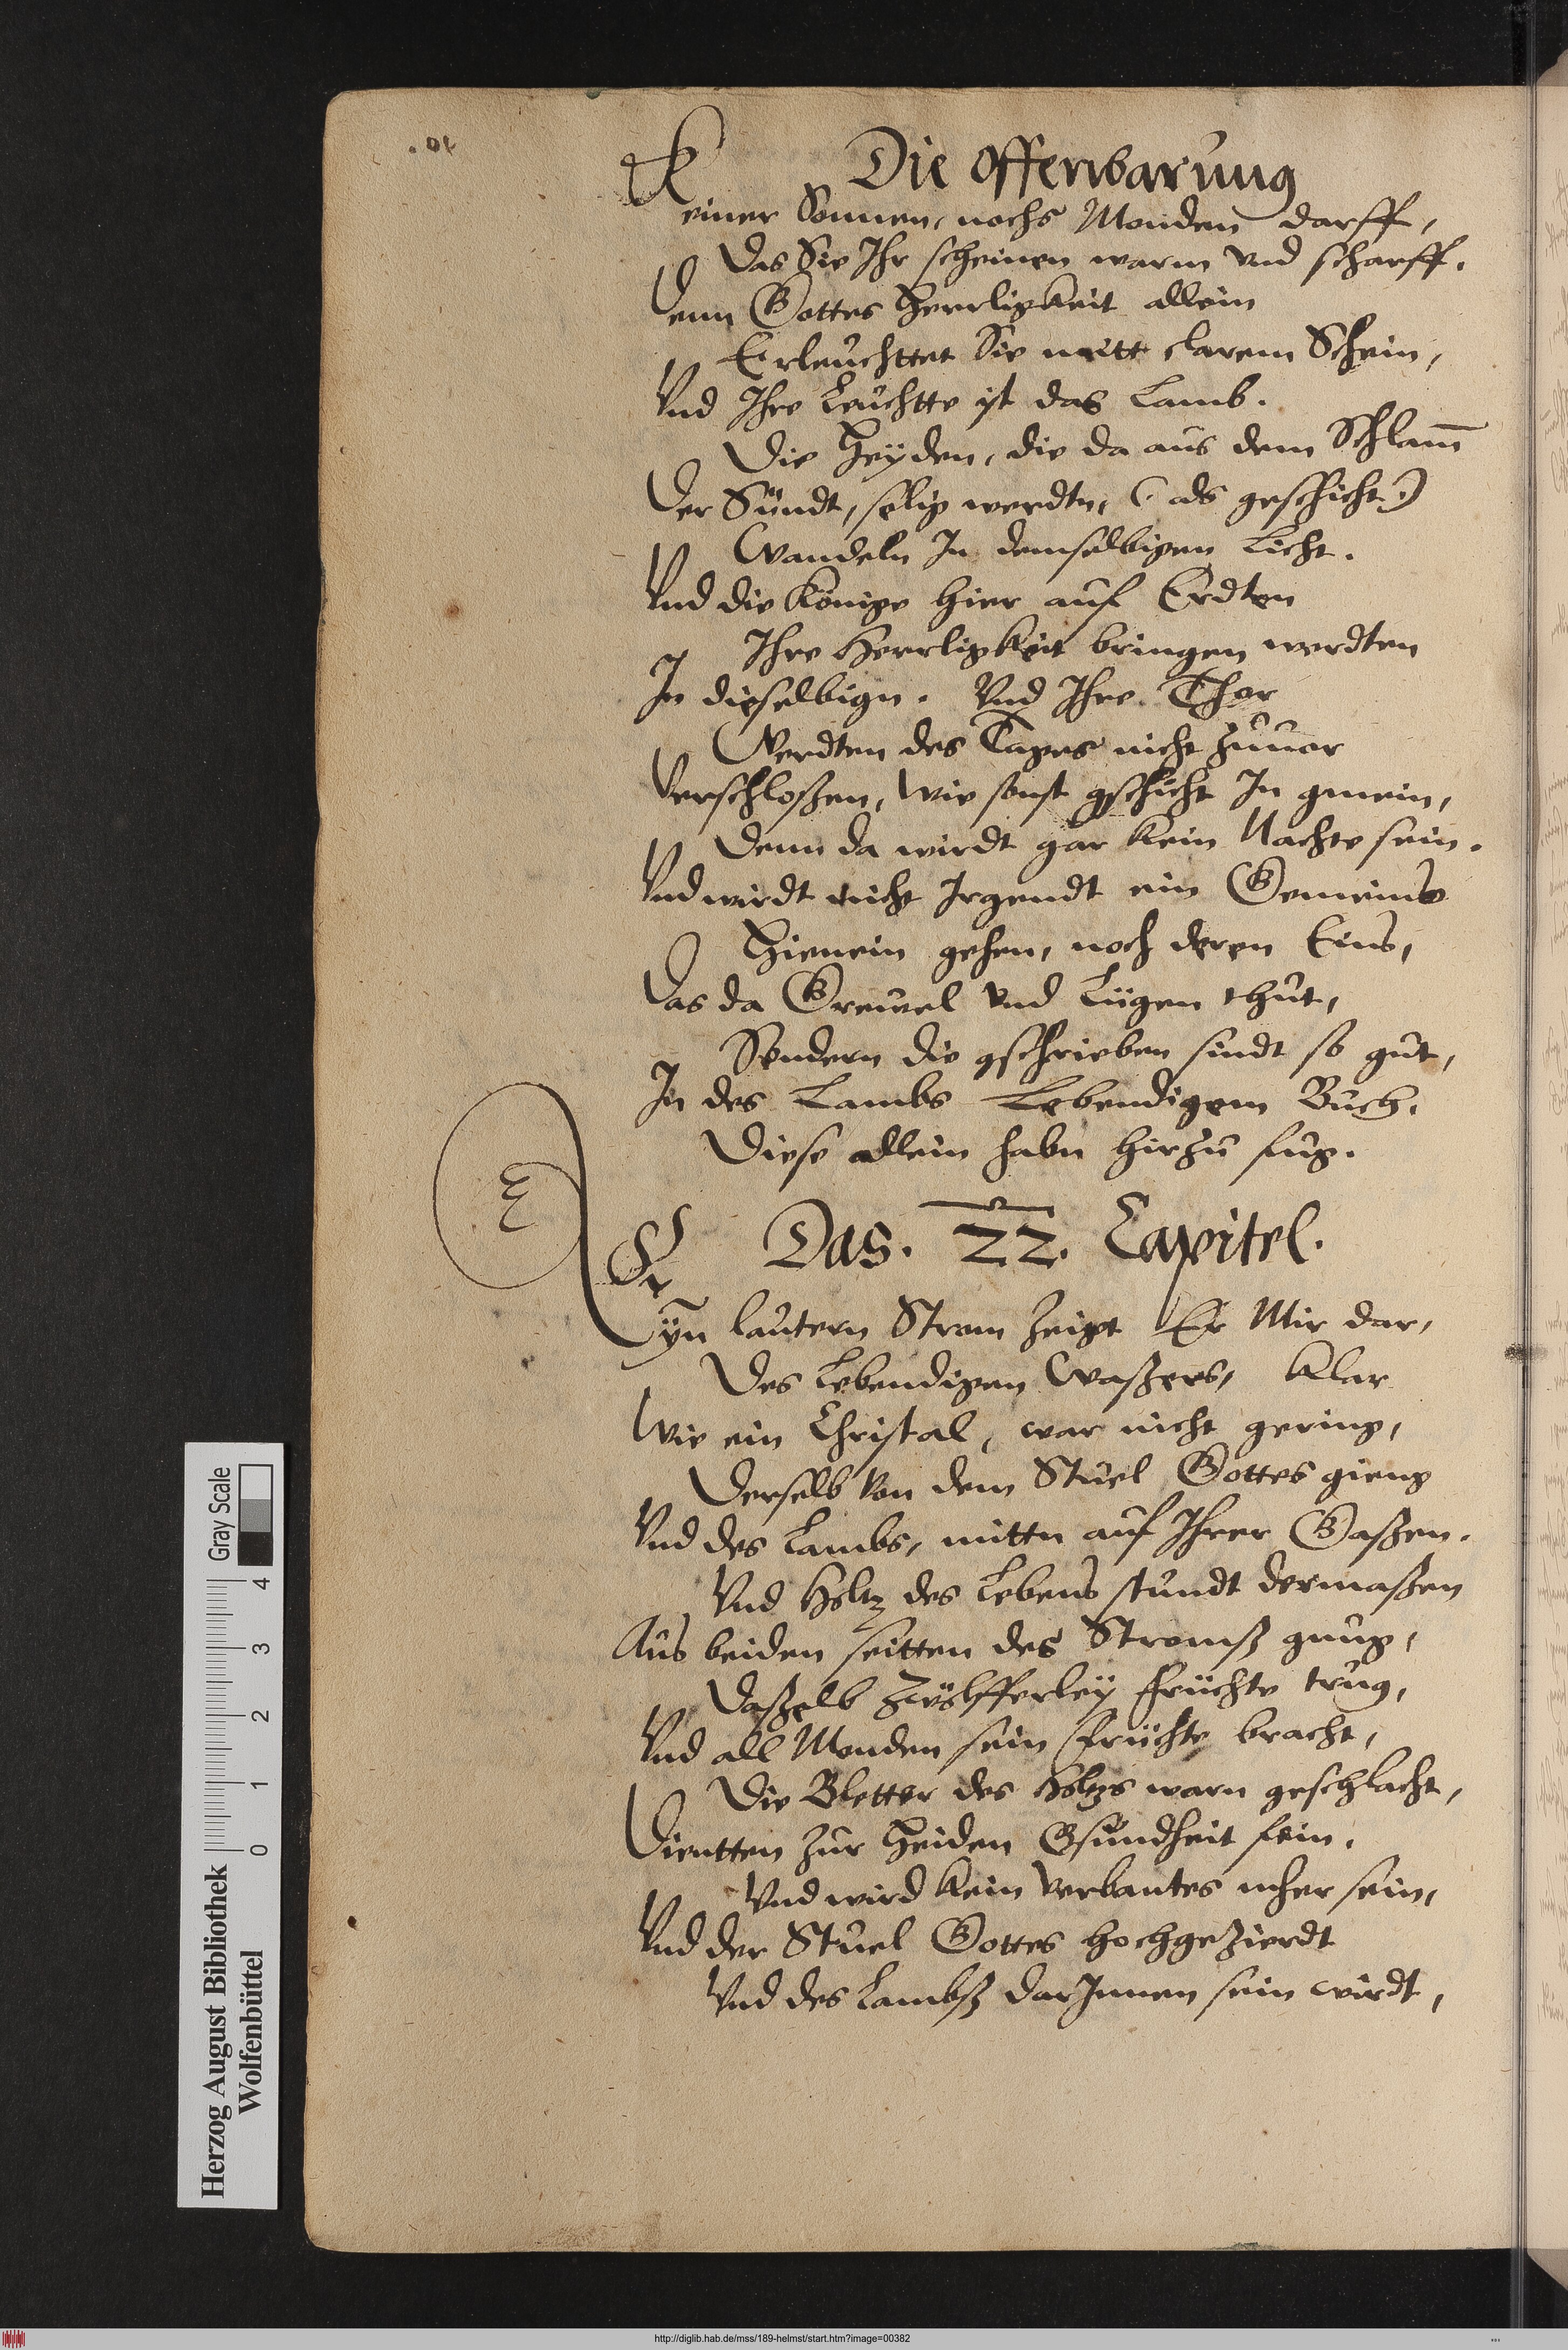 Die Offenbarung
Keiner Sonnen, nochs Monden darff,
Das Sie Ihr scheinen warm vnd scharff.
Denn Gottes Herrligkeit allein
Erleuchttet Sie mitt clarem Schein,
Vnd Ihre Leuchtte ist das Lamb.
Die Heyden, die da aus dem Schlam̄
Der Sündt, selig werdtn, (als geschicht)
Wandeln In demselbigen Licht.
Vnd die Könige hier auf Erdten
Ihre Herrligkeit bringen werdten
In dieselbign. Vnd Ihre Thor
Werdten des Tages nicht zuuor
Verschloßen, Wie sonst gschicht In gmein,
Denn da wirdt gar kein Nachte sein.
Vnd wirdt nicht Irgendt ein Gemeins
Hienein gehen, noch deren Eins,
Das da Greuwel vnd Lügen thut,
Sondern die gschrieben sindt so gut,
In des Lambs Lebendigem Buch.
Diese allein habn hirzu fug.
Das. 22. Capitel.
Eyn lautern Strom zeigt Er Mir dar,
Des Lebendigen Waßers, klar
Wie ein Christal, war nicht gering,
Derselb Von dem Stuel Gottes gieng
Vnd des Lambs, mittn auf Ihrer Gaßen.
Vnd Holtz des Lebens stundt dermaßen
Aus beiden seitten des Stromß gnug,
Daßelb Zwölfferley früchte trug,
Vnd all Monden sein früchte bracht,
Die Bletter des Holtzs warn geschlacht,
Dientten zur Heiden Gsundheit fein.
Vnd wird kein verbantes mher sein,
Vnd der Stuel Gottes hochgezierdt
Vnd des Lambß darInnen sein wirdt,
Herzog August Bibliothek
Wolfenbüttel
0 1 2 3 4
Gray Scale
http://diglib.hab.de/mss/189-helmst/start.htm?image=00382